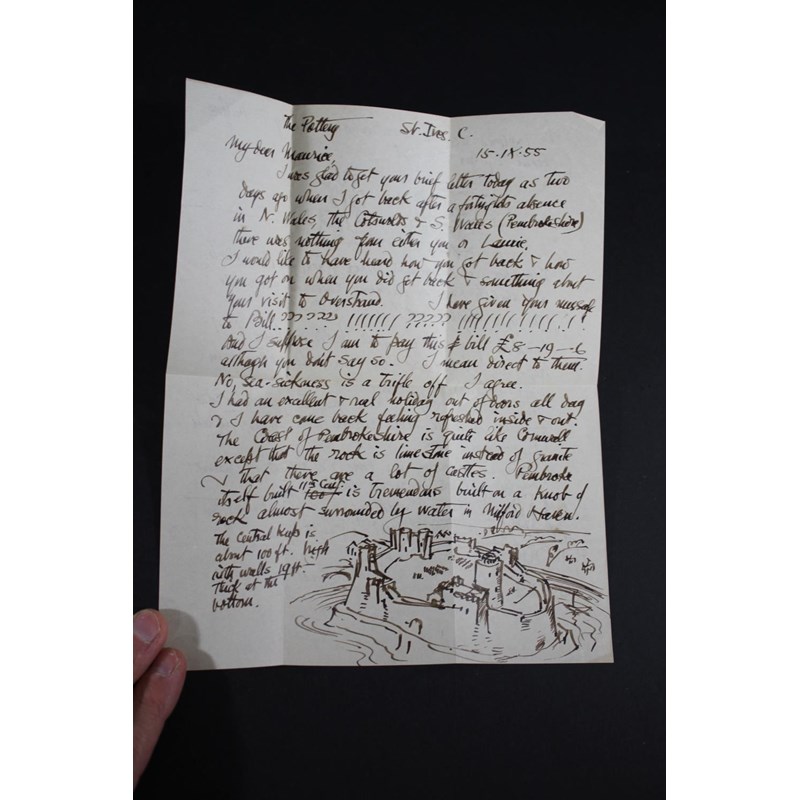 The Pottery St. Ives. C.
15-IX-55
My dear Maurice,
I was glad to get your brief letter today as two
days ago when I got back after a fortnights absence
in N. Wales, the Cotswolds & S. Wales (Pembrokeshire)
there was nothing from either you or Laurie,
I would like to have heard how you got back & how
you got on when you did get back & something about
your visit to Overstrand. I have given your message
to Bill..?????? !!!!!!! ????? !!!!!!! ! !!!! .! !
And I suppose I am to pay this £ bill £8-19-6
although you don't say so. I mean direct to them.
No, sea-sickness is a trifle off I agree.
I had an excellent & real holiday out of doors all day
& I have come back feeling refreshed inside & out.
The Coast of Pembrokeshire is quite like Cornwall
except that the rock is limestone instead of granite
& that there are a lot of castles. Pembroke
itself built 11th Cent. is tremendous built on a knob of
rock almost surrounded by water in Milford Haven.
The central keep is
about 100 ft. high
with walls 19 ft.
thick at the
bottom.